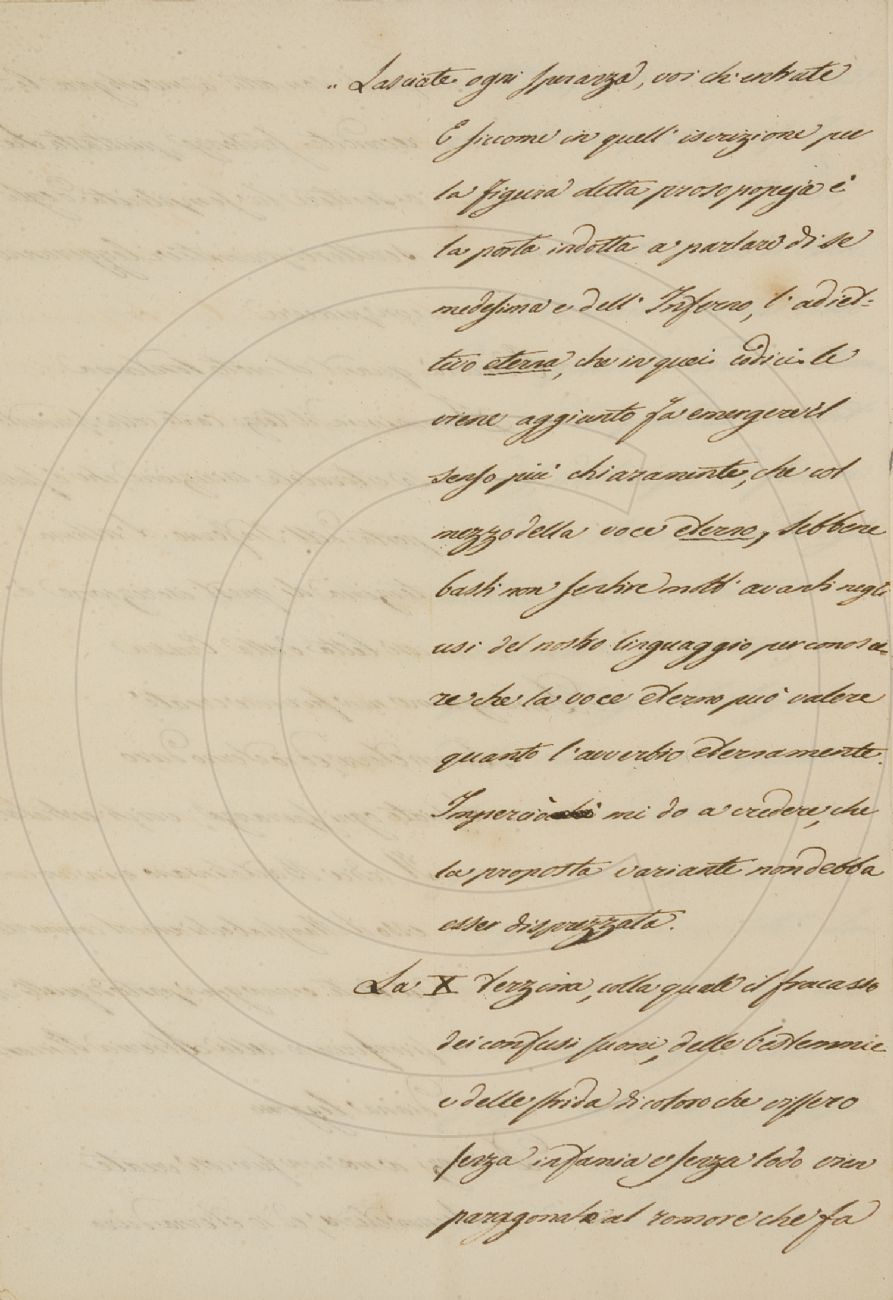 „ Lasciate ogni speranza, voi ch'entrate
E siccome in quell'iscrizione per
la figura detta prosopopeja è
la porta indotta a parlare di se
medesima e dell'Inferno, l'adiet-
tivo eterna, che in quei codici le
viene aggiunto fa emergere il
senso più chiaramente, che col
mezzo della voce eterno, sebbene
basti non sentire molt'avanti negli
usi del nostro linguaggio per conosce-
re che la voce eterno può valere
quanto l'avverbio eternamente.
Imperciò mi do a credere, che
la proposta variante non debba
esser disprezzata.
La X Terzina, colla quale il fracasso
dei confusi suoni, delle bestemmie
e delle strida di coloro che vissero
senza infamia e senza lodo vien
paragonata al romore che fa